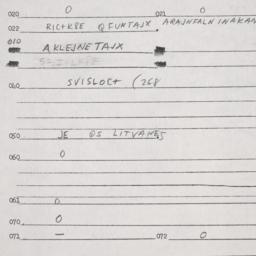 020 0 021 0
022 RICHKBE QFUNTAJX ARAJNFALN INAKAN
010 AKLEJNETAJX
040 SVISLOCH (268
050 JE QS LITVAKES
060 0
061 0
070 0
071 — 072 0